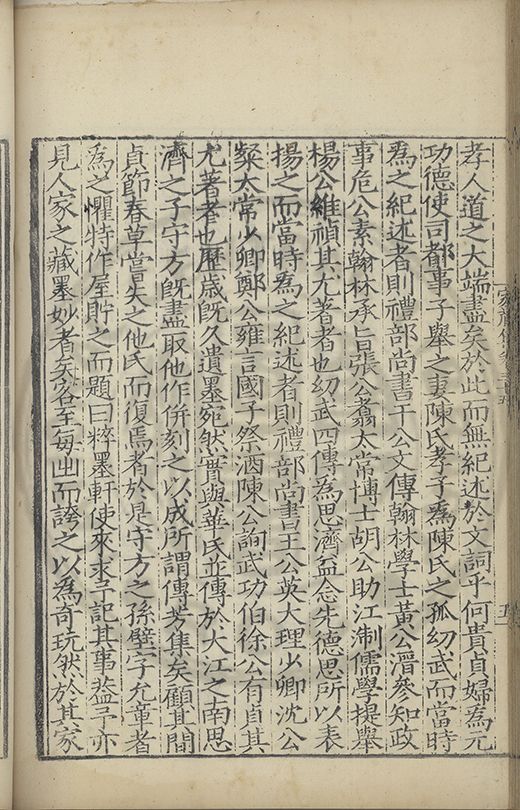 孝人道之大端盡矣於此而無紀述於文詞乎何貴貞婦爲元
功德使司都事子舉之妻陳氏孝子爲陳氏之孤幼武而當時
爲之紀述者則禮部尚書干公文傳翰林學士黃公溍參知政
事危公素翰林承旨張公翥太常博士胡公助江浙儒學提舉
楊公維禎其尤著者也幼武四傳爲思濟益念先德思所以表
揚之而當時爲之紀述者則禮部尚書王公英大理少卿沈公
粲太常少卿鄭公雍言國子祭酒陳公詢武功伯徐公有貞其
尤著者也歷歲旣久遺墨宛然實與華氏並傳於大江之南思
濟之子守方旣盡取他作併刻之以成所謂傳芳集矣顧其間
貞節春草嘗失之他氏而復焉者於是守方之孫璧字允童者
爲之懼特作屋貯之而題曰粹墨軒使來求予記其事蓋予亦
見人家之藏墨妙者矣客至每出而誇之以爲奇玩然於其家